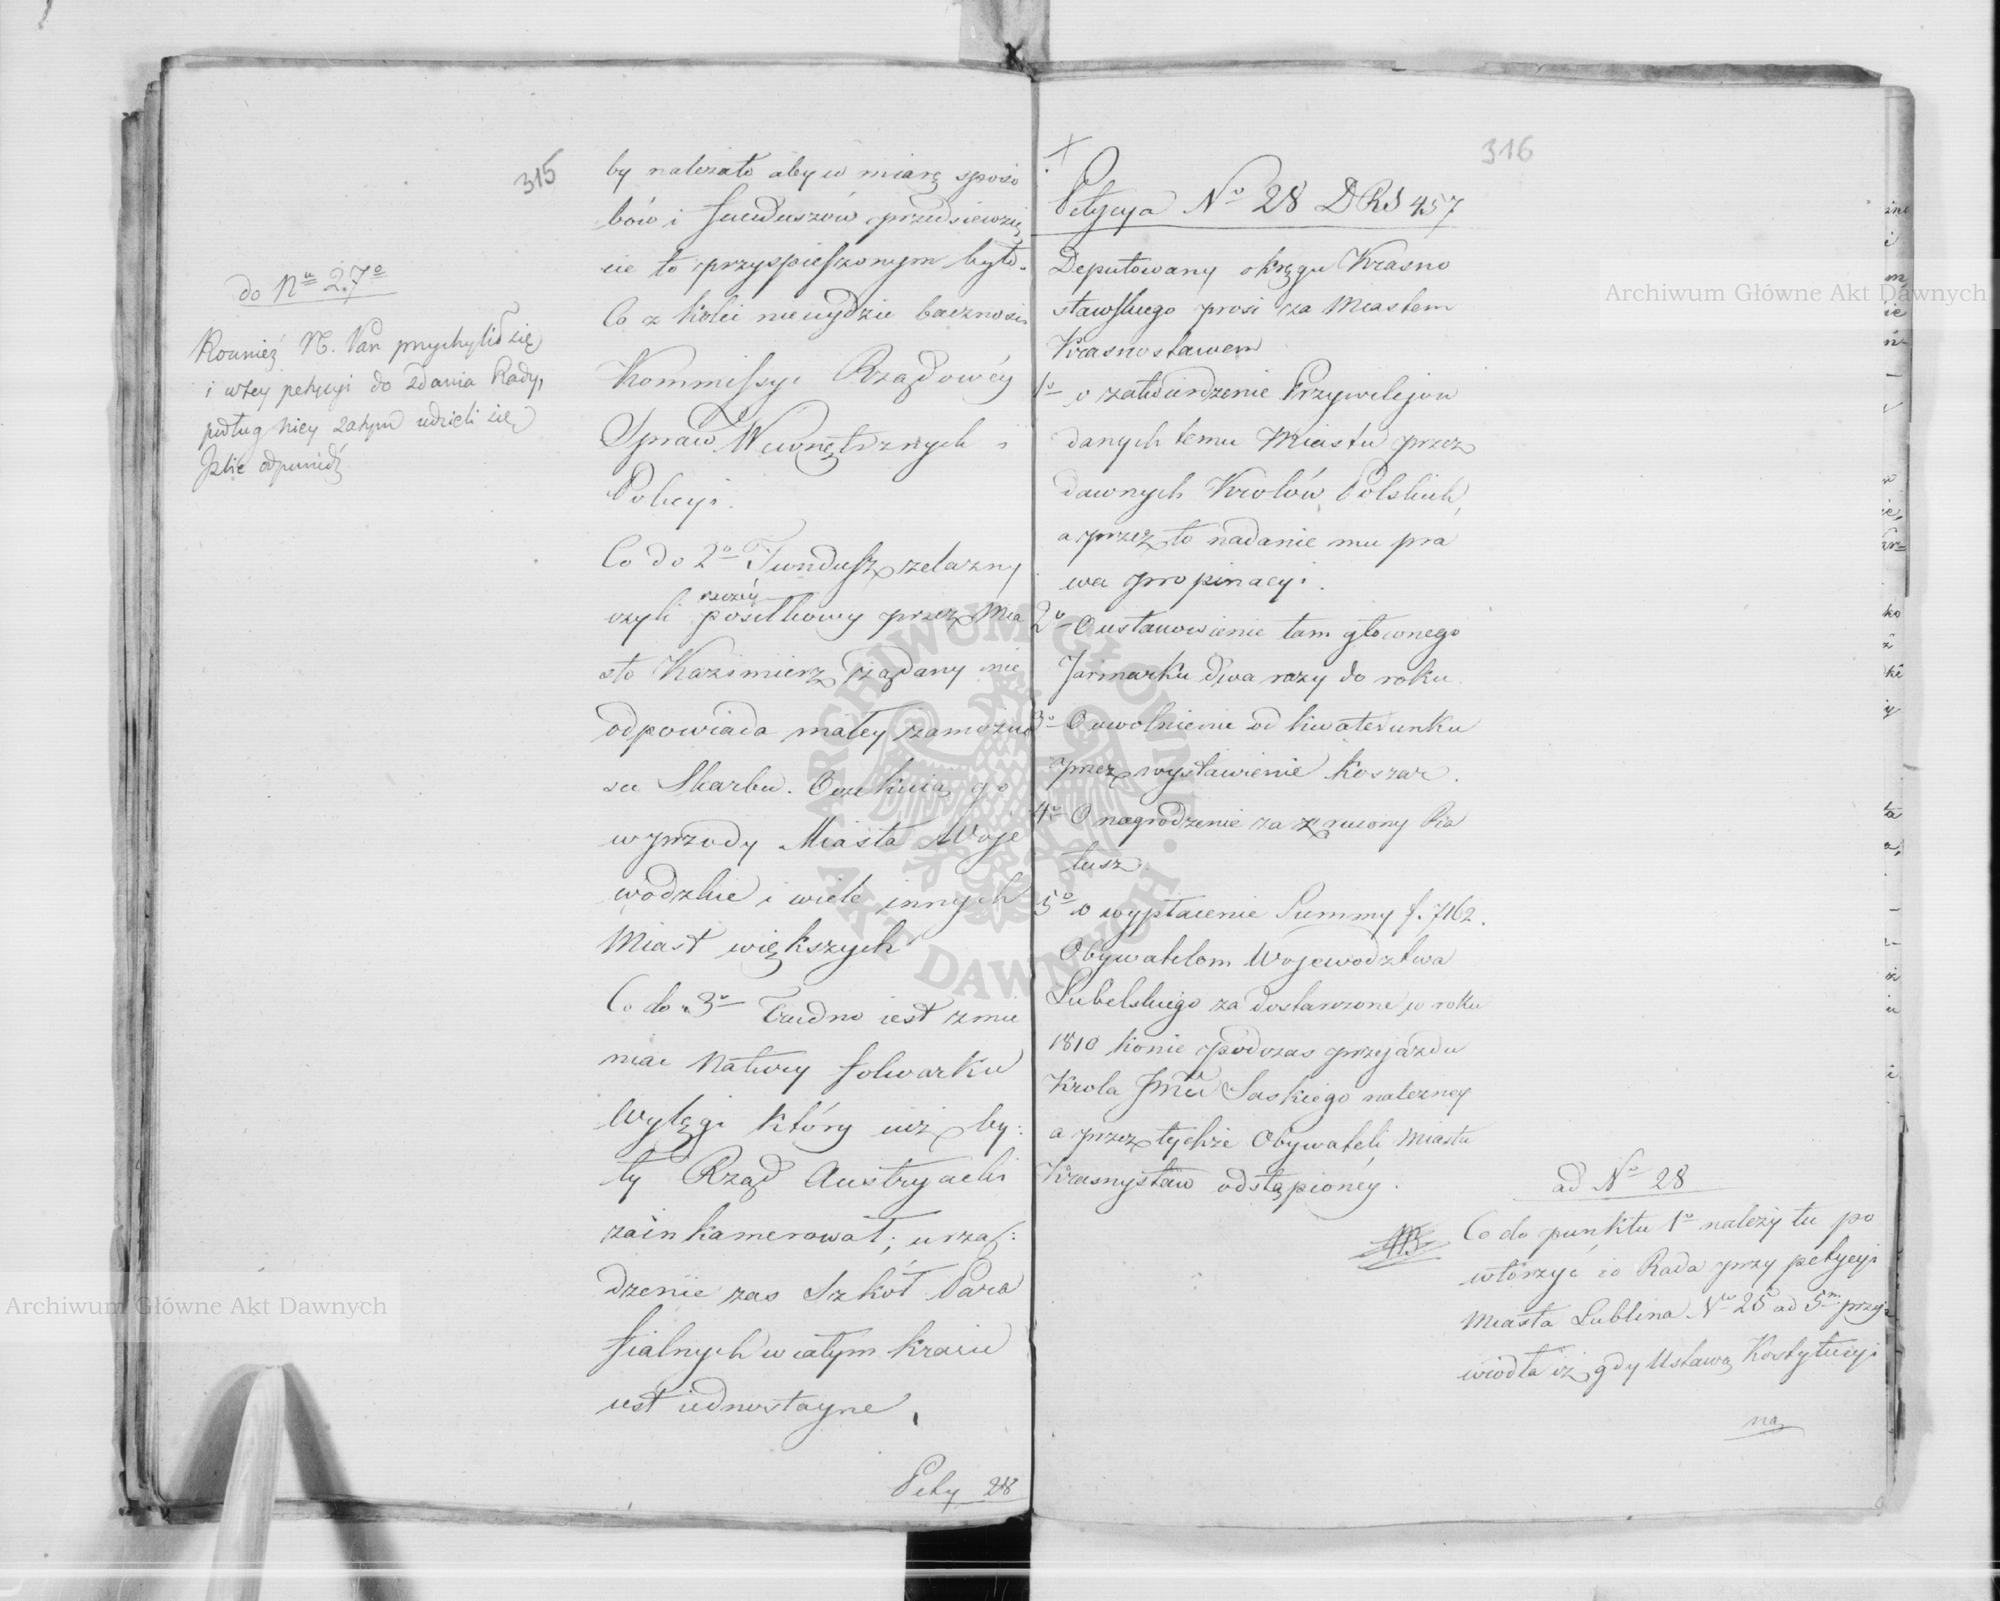 315
do Nru 27o
Rownież N. Pan przychylił się
i w tey petycyi do zdania Rady,
podług niey zatym udzieli się
Izbie odpowiedź
by należało aby w miarę sposo
bów i funduszów przedsiewzię
cie to przyspieszonym było.
Co z kolei nieuydzie baczności
Kommissyi Rządowéy
Spraw Wewnętrznych i
Policyi.
Co do 2o Fundusz żelazny
czyli raczéy posiłkowy przez Mia
sto Kazimierz żądany nie
odpowiada małey zamożno
sci Skarbu. Oczekuią go
wprzody Miasta Woje
wodzkie i wiele innych
Miast większych
Co do 3o Trudno iest zmie
niac Natury folwarku
Wylągi który iuż by:
ły Rząd Austryacki
zainkamerował; urzą:
dzenie zas Szkół Para
fialnych w całym kraiu
iest iednostayne.
Pety 28
316
Petycya No 28 DRS 457
Deputowany okręgu Krasno
stawskiego prosi za Miastem
Krasnostawem
1o o zatwierdzenie Przywilejow
danych temu Miastu przez
dawnych Krolów Polskich,
a przez to nadanie mu pra
wa propinacyi.
2o O ustanowienie tam głownego
Jarmarku dwa razy do roku.
3o O uwolnienie od kwaterunku
przez wystawienie koszar.
4o O nagrodzenie za zrzucony Ra
tusz.
5o o wypłacenie Summy f. 7162.
Obywatelom Wojewodztwa
Lubelskiego za dostarczone w roku
1810 konie podczas przejazdu
Krola Jmci Saskiego należney
a przez tychże Obywateli Miastu
Krasnystaw odstąpionéy.
ad No 28
Co do punktu 1o należy tu po
wtórzyć co Rada przy petycyi
Miasta Lublina Nro 25 ad 5m przy
wiodła iż gdy Ustawa Kostytucyi
na
Archiwum Główne Akt Dawnych
Archiwum Główne Akt Dawnych
ARCHIWUM GŁÓWNE AKT DAWNYCH